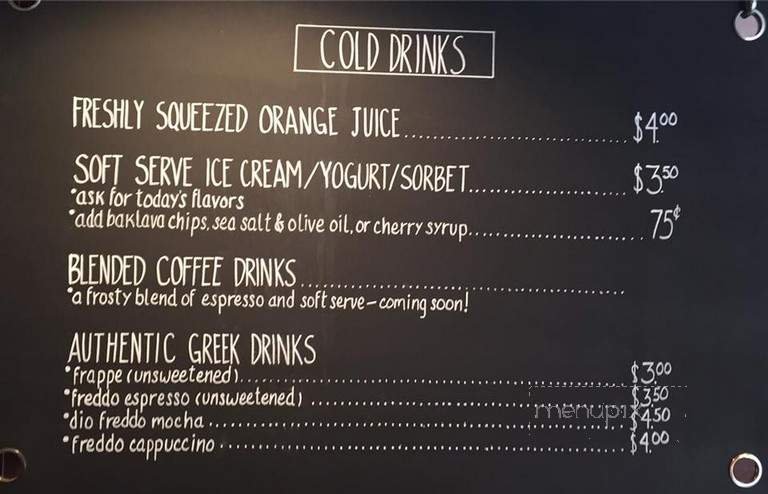 COLD DRINKS
FRESHLY SQUEEZED ORANGE JUICE.............................$4.00
SOFT SERVE ICE CREAM/YOGURT/SORBET.....................$3.50
*ask for today's flavors
*add baklava chips, sea salt & olive oil, or cherry syrup........................75¢
BLENDED COFFEE DRINKS..........................................
*a frosty blend of espresso and soft serve – coming soon!
AUTHENTIC GREEK DRINKS
*frappe (unsweetened)..................................................$3.00
*freddo espresso (unsweetened) ........................................$3.50
*dio freddo mocha.......................................................$4.50
menupix
*freddo cappuccino......................................................$4.00